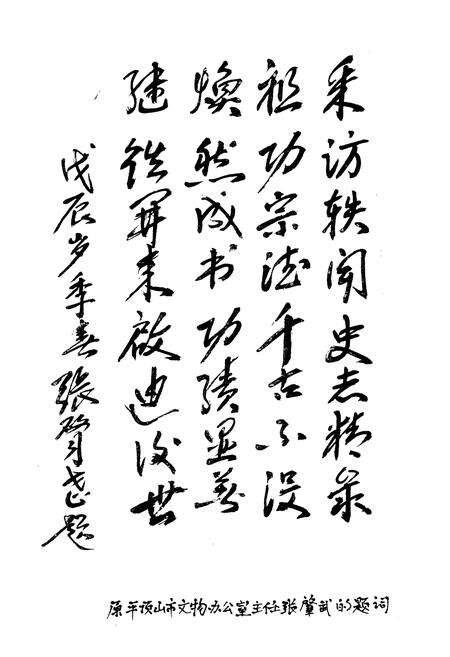 采访轶闻史志精录
祖功宗德千古不没
焕然成书功绩显著
继开来啟迪后世
戊辰岁季春張肇武题
原平顶山市文物办公室主任张肇武的题词